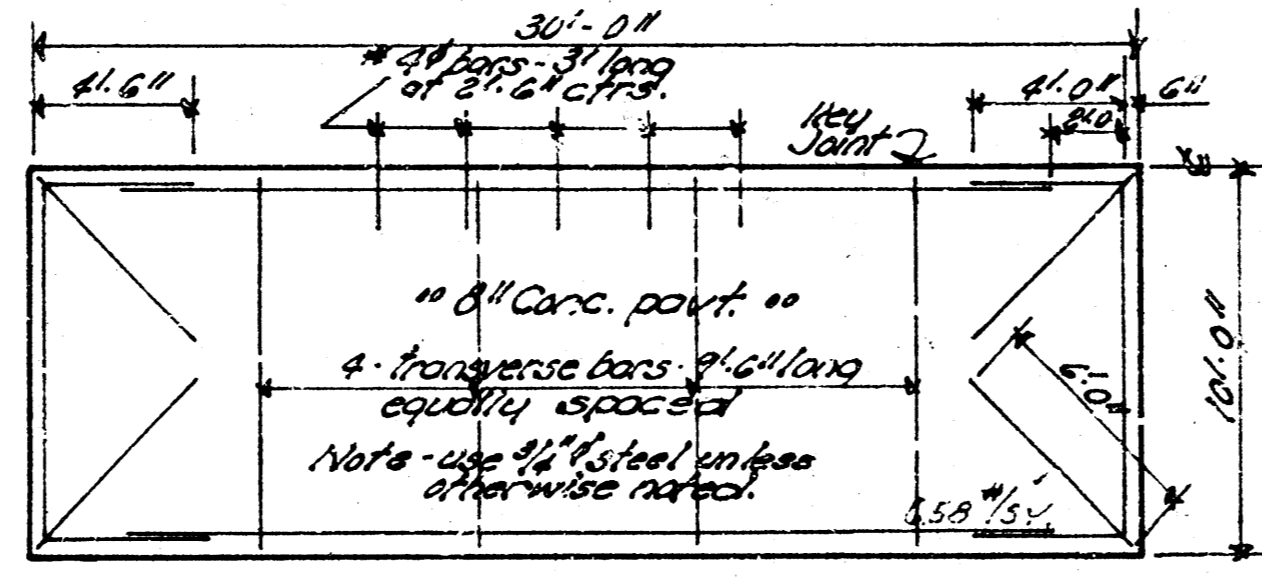 30'-0"
#4⌀ bars - 3' long
at 2'-6" ctrs.
4'-6"
4'-0"
6"
2'-0"
Key
Joint
8" Conc. pavt.
4 - transverse bars - 9'-6" long
equally spaced
6'-0"
10'-0"
Note - use 3/4"⌀ steel unless
otherwise noted.
6.58 #/s.y.